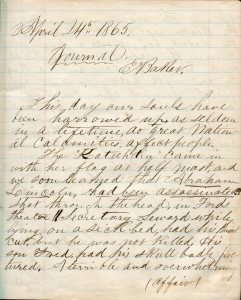 April 14th 1865.
Journal.
E Baker.
This day our souls have
been harrowed up as seldom
in a lifetime, as great Nation
al Calamities affect people.
The Katahdin came in
with her flag at half mast, and
we soon learned that Abraham
Lincoln, had been assassinated
shot through the head, in Fords
theater. Secretary Seward while
lying on a sick bed, had his
cut, but he was not killed. His
son Fred, had his skull badly
tured. A terrible and overwhelming
(affair)